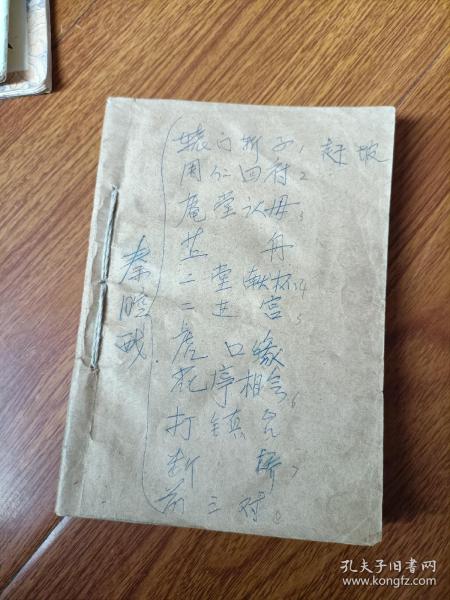 秦腔戏
辕门斩子1 赶坡
周仁回府2
庵堂认母3
苎舟
二堂献杯4
二进宫5
虎口缘
花亭相会6
打镇台
断桥7
前三对8
孔夫子旧书网
www.kongfz.com